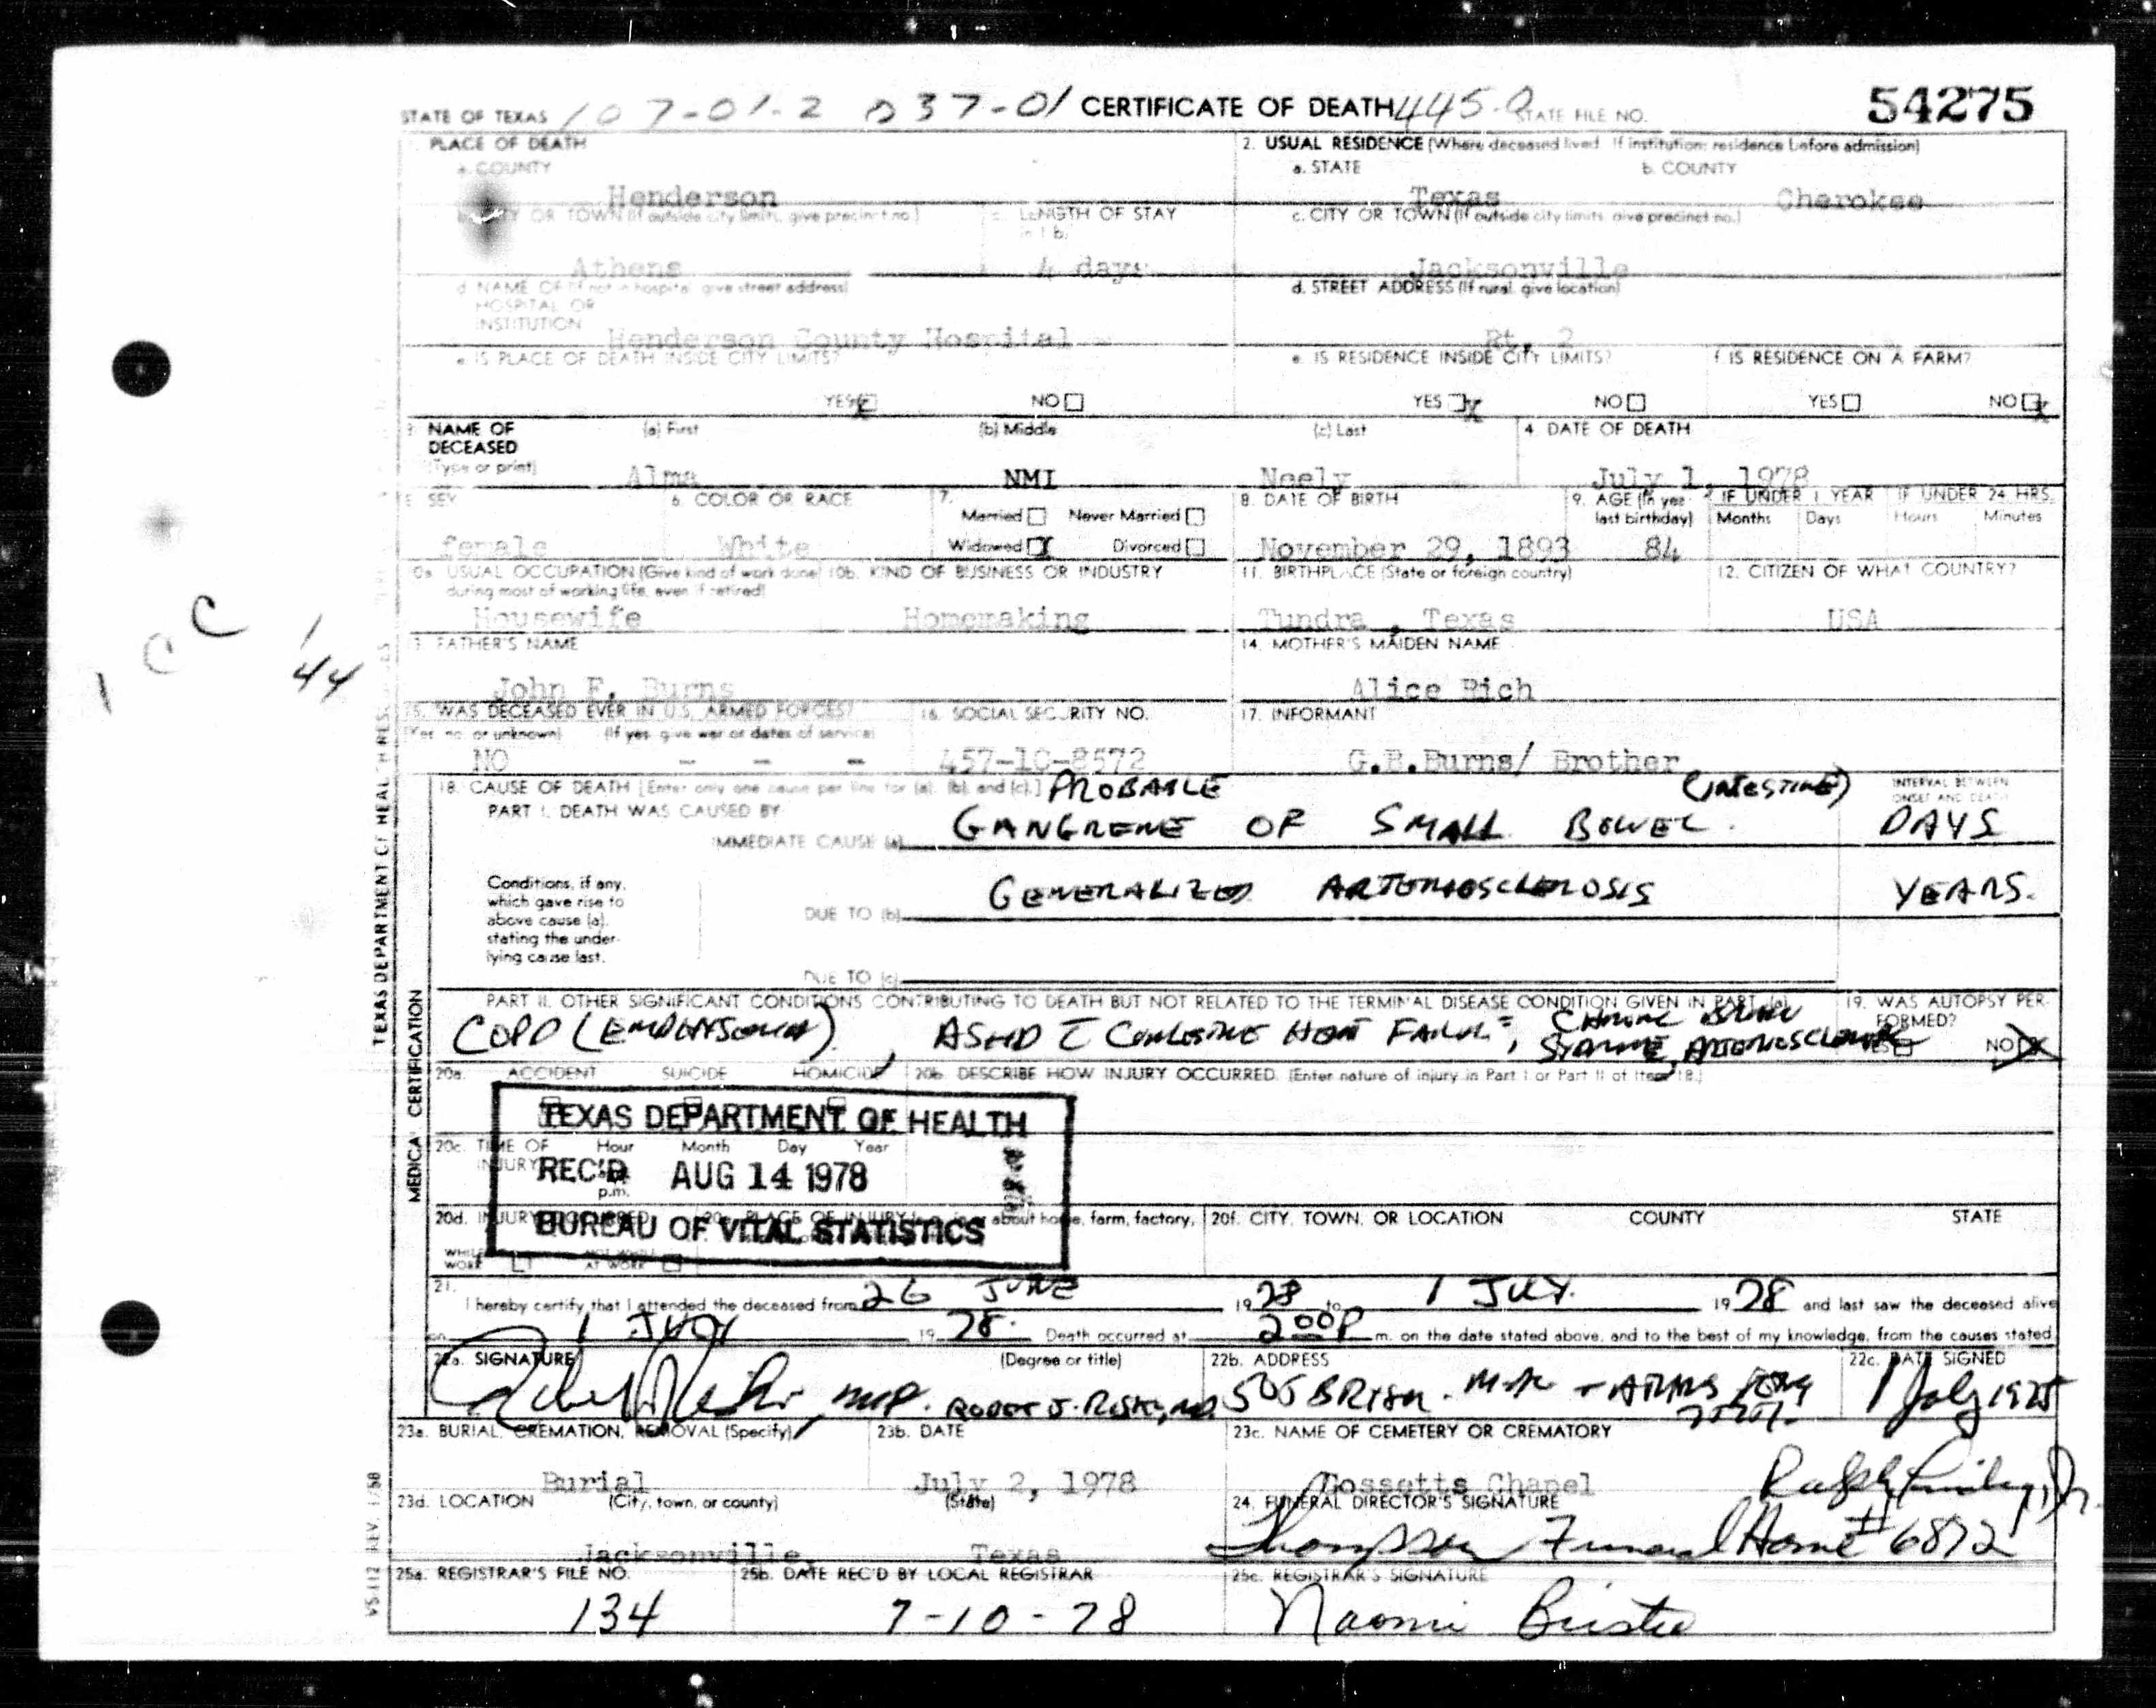 STATE OF TEXAS 107-01-2 037-01 CERTIFICATE OF DEATH 445-9 STATE FILE NO. 54275
PLACE OF DEATH
a. COUNTY
Henderson
2. USUAL RESIDENCE (Where deceased lived. If institution: residence before admission)
a. STATE b. COUNTY
Texas Cherokee
CITY OR TOWN (If outside city limits, give precinct no.) c. LENGTH OF STAY in 1 b.
Athens 4 days
c. CITY OR TOWN (If outside city limits, give precinct no.)
Jacksonville
d. NAME OF (If not in hospital, give street address)
HOSPITAL OR
INSTITUTION
Henderson County Hospital
d. STREET ADDRESS (If rural, give location)
Rt. 2
e. IS PLACE OF DEATH INSIDE CITY LIMITS?
YES X NO
e. IS RESIDENCE INSIDE CITY LIMITS? f. IS RESIDENCE ON A FARM?
YES X NO YES NO X
3. NAME OF DECEASED (Type or print) (a) First (b) Middle (c) Last 4. DATE OF DEATH
Alma NMI Neely July 1, 1978
5. SEX 6. COLOR OR RACE 7. 8. DATE OF BIRTH 9. AGE (In yea last birthday) IF UNDER 1 YEAR IF UNDER 24 HRS.
Married Never Married Months Days Hours Minutes
Widowed X Divorced
female White November 29, 1893 84
10a. USUAL OCCUPATION (Give kind of work done during most of working life, even if retired) 10b. KIND OF BUSINESS OR INDUSTRY 11. BIRTHPLACE (State or foreign country) 12. CITIZEN OF WHAT COUNTRY?
Housewife Homemaking Tundra , Texas USA
13. FATHER'S NAME 14. MOTHER'S MAIDEN NAME
John F. Burns Alice Rich
15. WAS DECEASED EVER IN U.S. ARMED FORCES? 16. SOCIAL SECURITY NO. 17. INFORMANT
(Yes, no, or unknown) (If yes, give war or dates of service)
NO - - - 457-10-8572 G.B.Burns/ Brother
18. CAUSE OF DEATH [Enter only one cause per line for (a), (b), and (c).] PROBABLE (INTESTINE) INTERVAL BETWEEN ONSET AND DEATH
PART I. DEATH WAS CAUSED BY:
IMMEDIATE CAUSE (a) GANGRENE OF SMALL BOWEL. DAYS
Conditions, if any,
which gave rise to
above cause (a),
stating the under-
lying cause last.
DUE TO (b) GENERALIZED ARTERIOSCLEROSIS YEARS.
DUE TO (c)
PART II. OTHER SIGNIFICANT CONDITIONS CONTRIBUTING TO DEATH BUT NOT RELATED TO THE TERMINAL DISEASE CONDITION GIVEN IN PART I(a) 19. WAS AUTOPSY PERFORMED?
COPD (EMPHYSEMA), ASHD C CONGESTIVE HEART FAILURE, CHRONIC BRAIN
SYNDROME, ARTERIOSCLEROTIC YES NO X
20a. ACCIDENT SUICIDE HOMICIDE 20b. DESCRIBE HOW INJURY OCCURRED. (Enter nature of injury in Part I or Part II of item 18.)
TEXAS DEPARTMENT OF HEALTH
20c. TIME OF INJURY Hour Month Day Year
REC'D AUG 14 1978
p.m.
20d. INJURY about home, farm, factory, 20f. CITY, TOWN, OR LOCATION COUNTY STATE
BUREAU OF VITAL STATISTICS
WHILE WORK NOT WHILE AT WORK
21. I hereby certify that I attended the deceased from 26 JUNE 19 78 to 1 JULY. 19 78 and last saw the deceased alive
on 1 JULY 19 78. Death occurred at 2 00 P m. on the date stated above, and to the best of my knowledge, from the causes stated.
22a. SIGNATURE (Degree or title) 22b. ADDRESS 22c. DATE SIGNED
MD. 505 1 July 1978
23a. BURIAL, CREMATION, REMOVAL (Specify) 23b. DATE 23c. NAME OF CEMETERY OR CREMATORY
Burial July 2, 1978 Gossetts Chapel
23d. LOCATION (City, town, or county) (State) 24. FUNERAL DIRECTOR'S SIGNATURE
Jacksonville, Texas Thompson Funeral Home #6872
25a. REGISTRAR'S FILE NO. 25b. DATE REC'D BY LOCAL REGISTRAR 25c. REGISTRAR'S SIGNATURE
134 7-10-78 Naomi Bristee
1 C C 1/44
TEXAS DEPARTMENT OF HEALTH RES
MEDICAL CERTIFICATION
VS-112 REV. 1/58